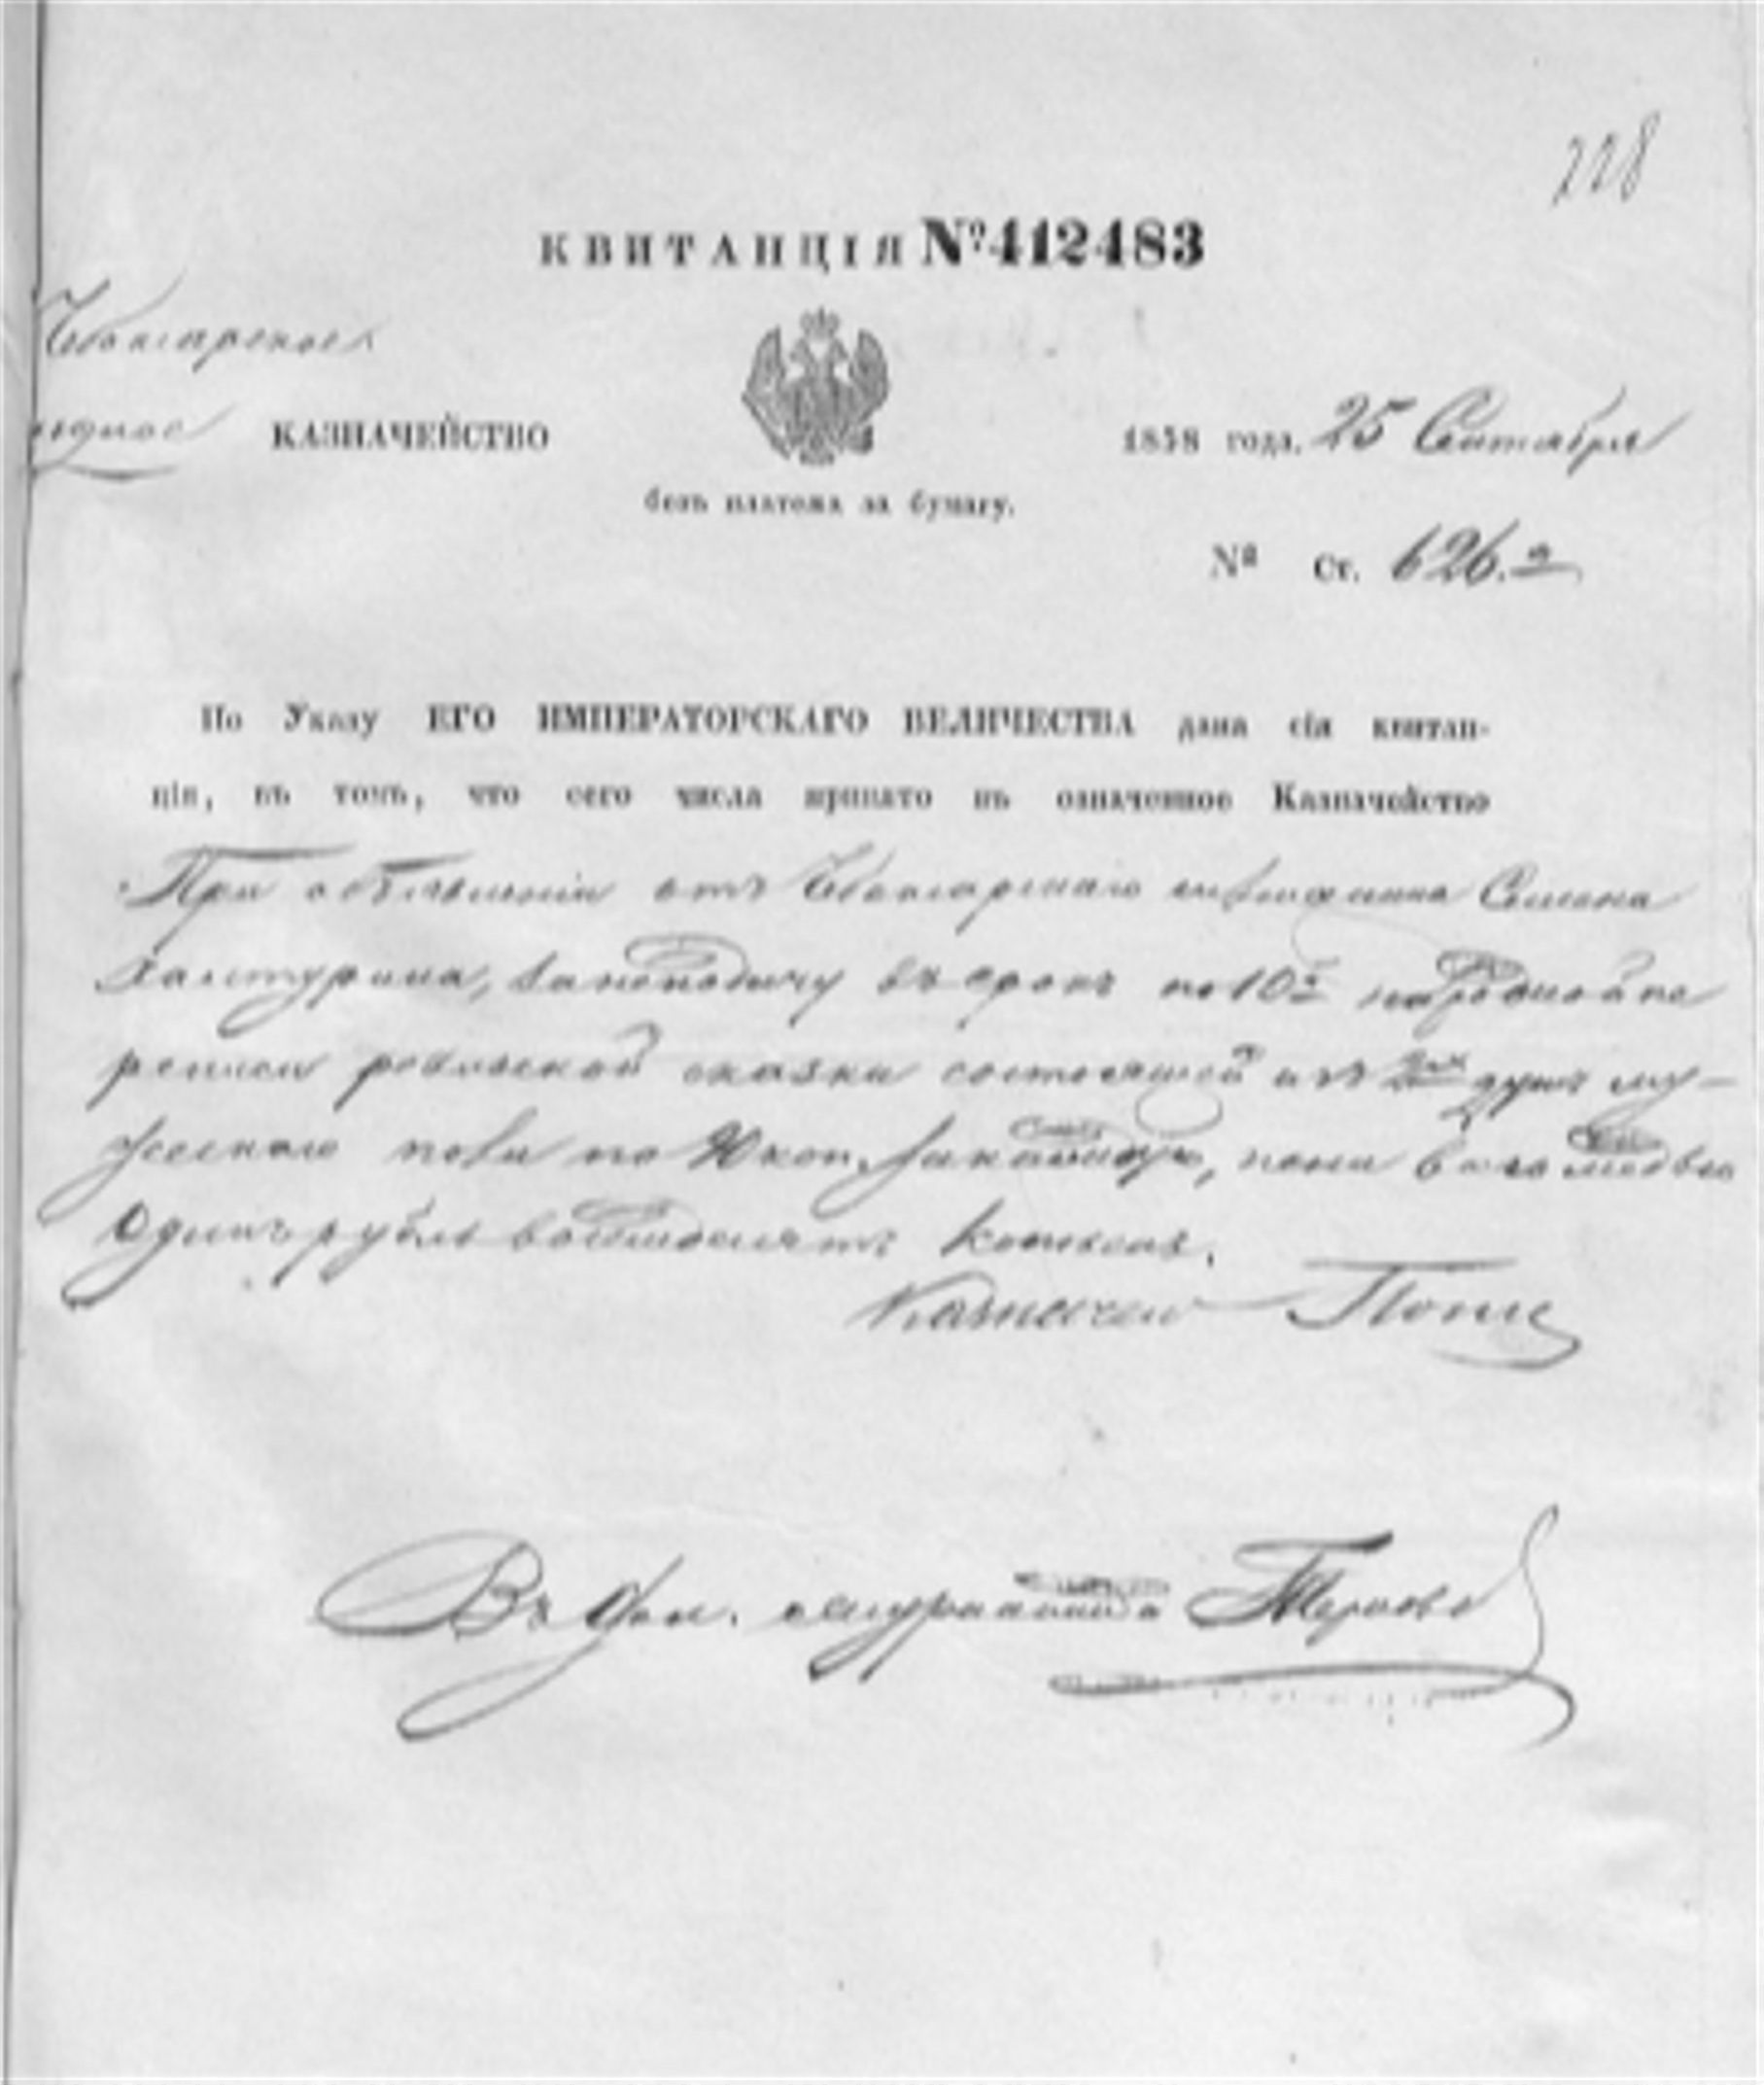 228
КВИТАНЦІЯ № 412483
Чебоксарское
уѣздное КАЗНАЧЕЙСТВО
1858 года. 25 Сентября
безъ платежа за бумагу.
№ Ст. 626.
По Указу ЕГО ИМПЕРАТОРСКАГО ВЕЛИЧЕСТВА дана сія квитан-
ція, въ томъ, что сего числа принято въ означенное Казначейство
При объявленіи отъ Чебоксарскаго мѣщанина Семена
Халтурина, за неподачу въ срокъ по 10й народной пе
реписи ревизской сказки состоящей изъ душъ му-
жескаго пола по коп.
Одинъ рубль восемдесятъ копѣекъ.
Казначей
Въ Дол.